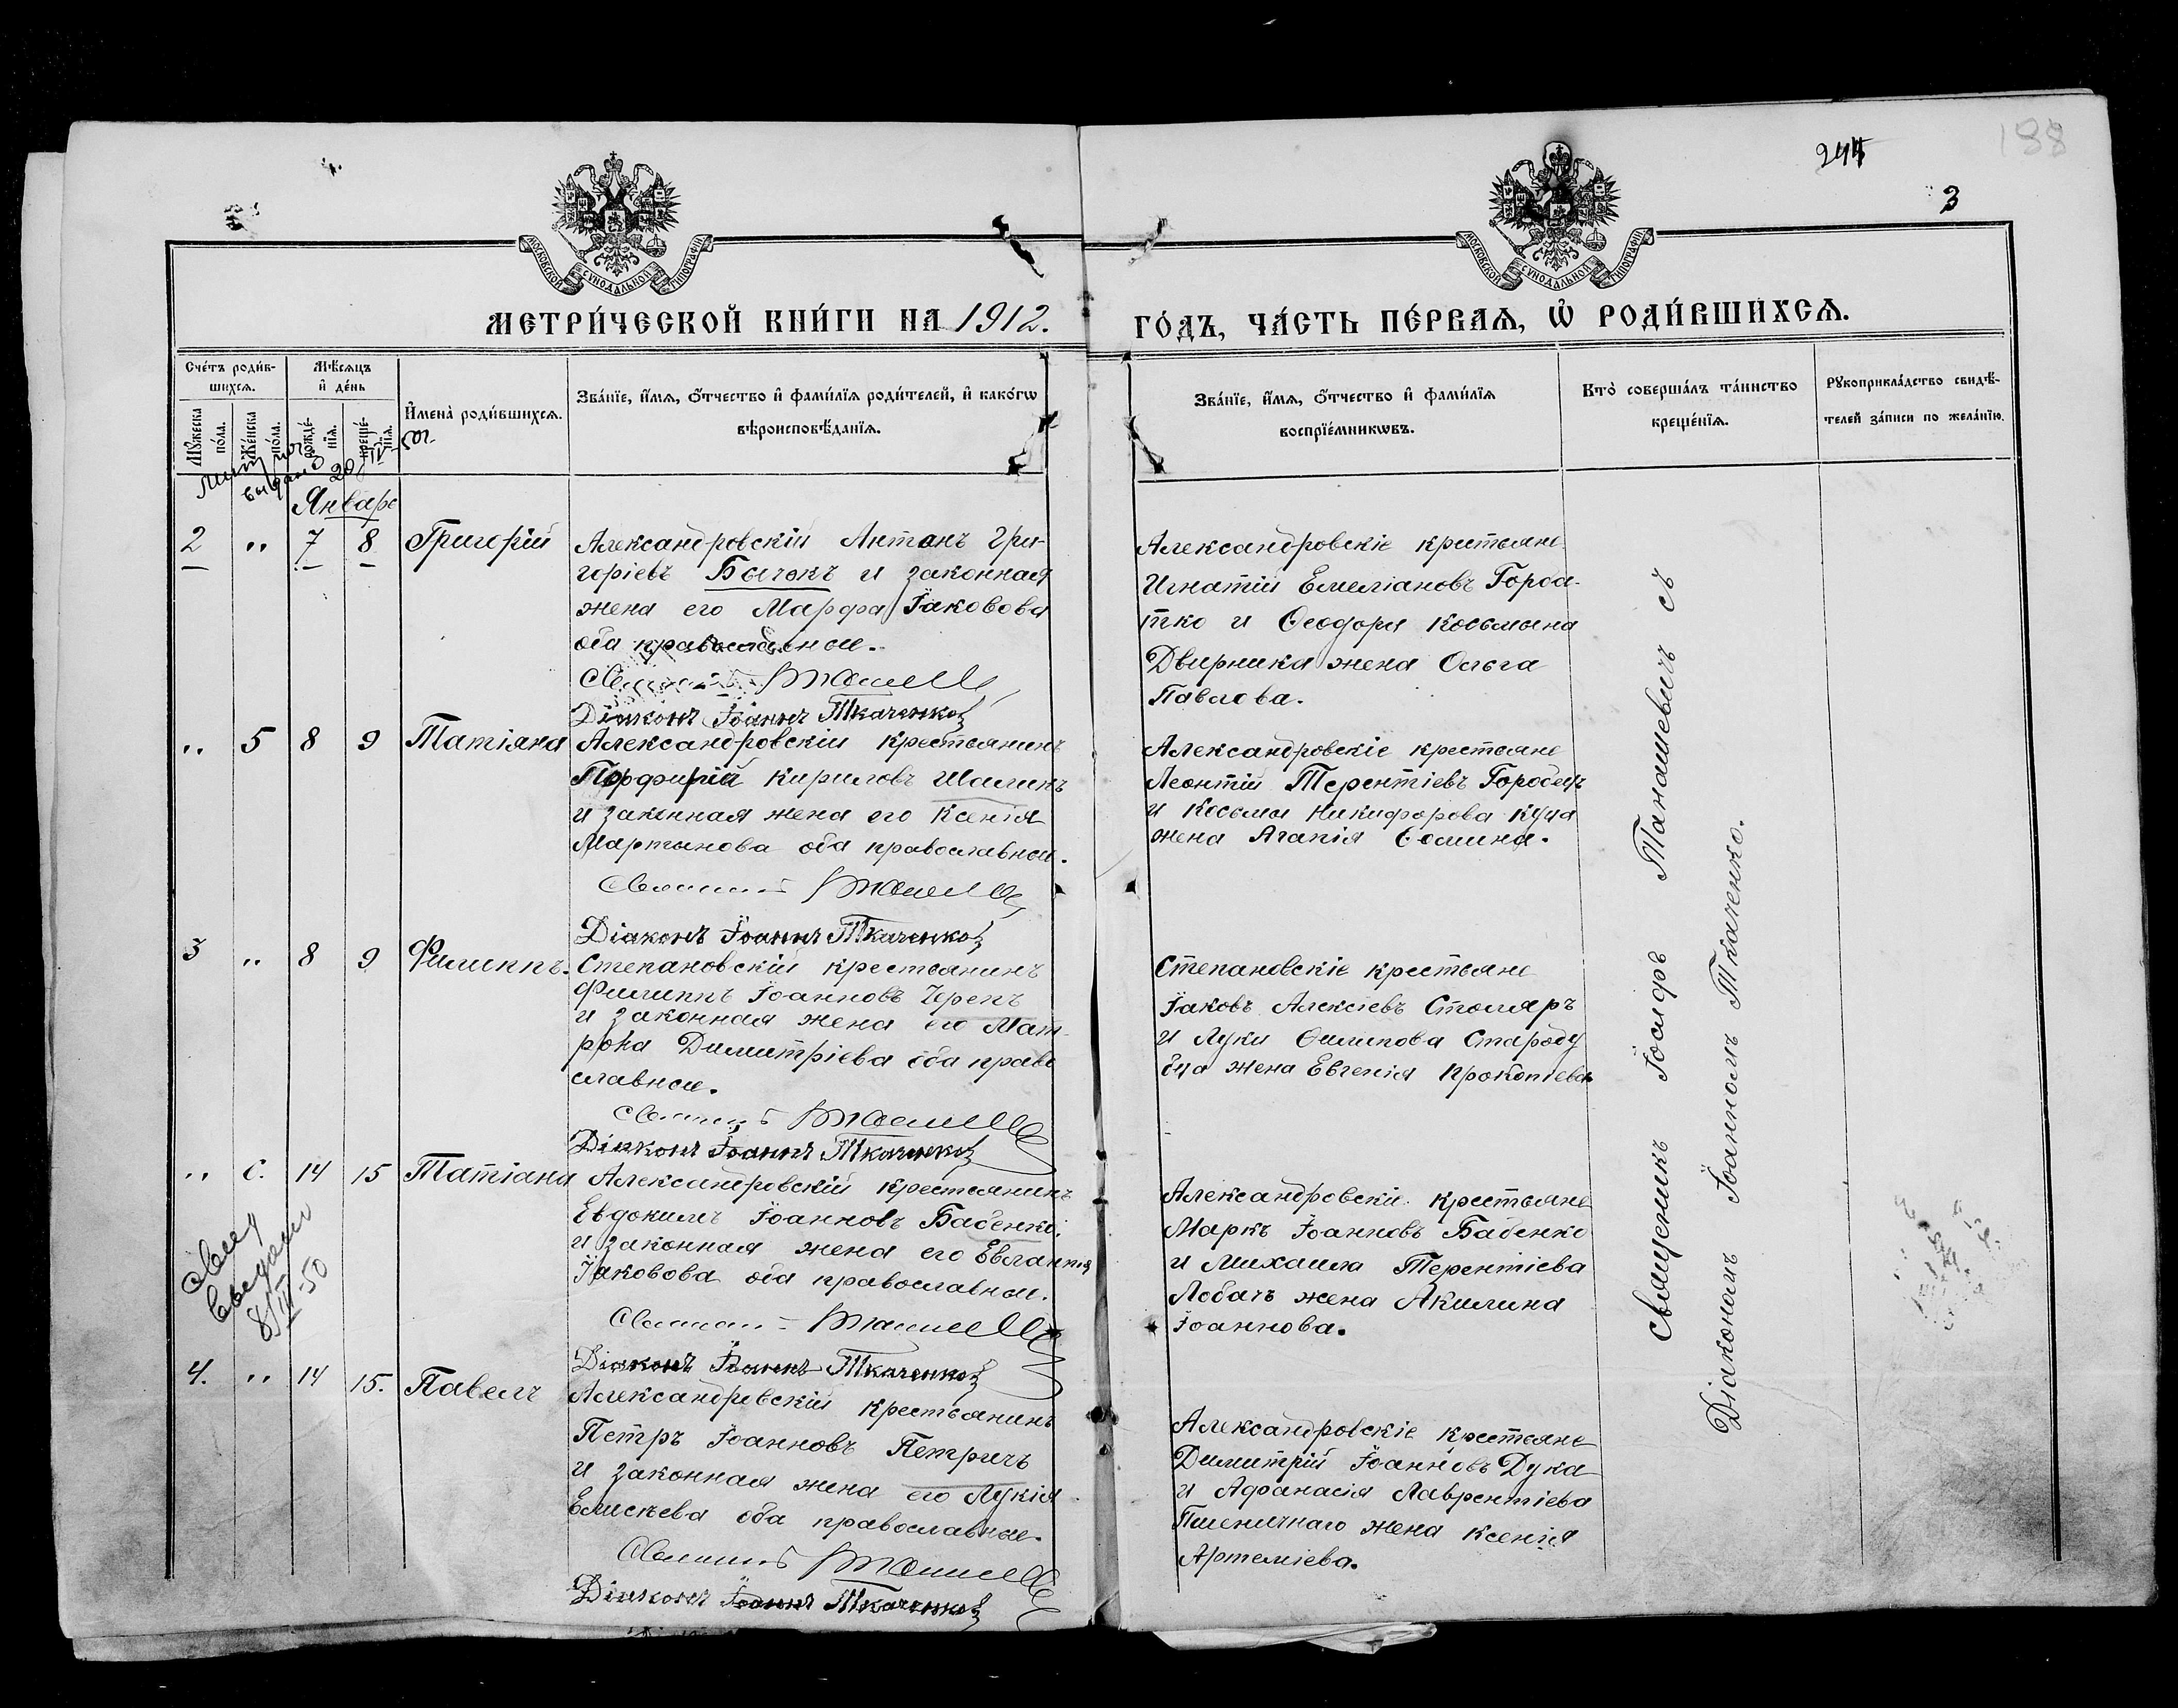 188
244
3
МОСКОВСКОЙ СУНОДАЛЬНОЙ ТИПОГРАФІИ
МОСКОВСКОЙ СУНОДАЛЬНОЙ ТИПОГРАФІИ
МЕТРИ́ЧЕСКОЙ КНИ́ГИ НА 1912.
ГО́ДЪ, ЧА́СТЬ ПЕ́РВАѦ, Ѡ РОДИ́ВШИХСѦ.
Сче́тъ роди́в-
шихсѧ.
Мѣ́сѧцъ
и де́нь
Мꙋ́жеска
по́ла.
Же́нска
по́ла.
рожде́-
нїѧ.
креще́-
нїѧ.
Имена̀ роди́вшихсѧ.
Зва́нїе, и́мѧ, о́тчество и фами́лїѧ роди́телей, и како́гѡ
вѣроисповѣ́данїѧ.
Зва́нїе, и́мѧ, о́тчество и фами́лїѧ
воспрїе́мникѡвъ.
Кто̀ соверша́лъ та́инство
креще́нїѧ.
Рꙋкоприкла́дство свидѣ́-
телей за́писи по жела́нїю.
Январь
2 " 7 8 Григорій
Александровскій Антонъ Гри-
горіевъ Бычокъ и законная
жена его Марфа Іаковова
оба православные.
Діаконъ Іоаннъ Ткаченко
Александровскіе крестьяне
Игнатій Емеліановъ Горо-
тко и Ѳеодора Косьмина
Дверника жена Ольга
Павлова.
" 5 8 9 Татіана
Александровскій крестьянинъ
Порфирій Кириловъ Шалинъ
и законная жена его Ксенія
Мартынова оба православные.
Діаконъ Іоаннъ Ткаченко
Александровскіе крестьяне
Леонтій Терентіевъ Городецъ
и Косьмы Никифорова Куца
жена Агапія Ѳомина.
3 " 8 9 Филиппъ.
Степановскій крестьянинъ
Филиппъ Іоанновъ Черепъ
и законная жена его Мат-
рона Димитріева оба право
славные.
Діаконъ Іоаннъ Ткаченко
Степановскіе крестьяне
Іаковъ Алексіевъ Столяръ
и Луки Филипова Староду
бца жена Евгенія Прокопіева
" 6. 14 15 Татіана
Александровскій крестьянинъ
Евдокимъ Іоанновъ Бабенко
и законная жена его Евлампія
Іаковова оба православные.
Діаконъ Іоаннъ Ткаченко
Александровскіе крестьяне
Маркъ Іоанновъ Бабенко
и Михаила Терентіева
Лобачъ жена Акилина
Іоаннова.
выдано
8/IV-50
4. " 14 15. Павелъ
Александровскій крестьянинъ
Петръ Іоанновъ Петричъ
и законная жена его Лукія
Елисѣева оба православные.
Діаконъ Іоаннъ Ткаченко
Александровскіе крестьяне
Димитрій Іоанновъ Дука
и Афанасія Лаврентіева
Пшеничнаго жена Ксенія
Артеміева.
Священникъ Іоасафъ Танашевичъ съ
Діакономъ Іоанномъ Ткаченко.